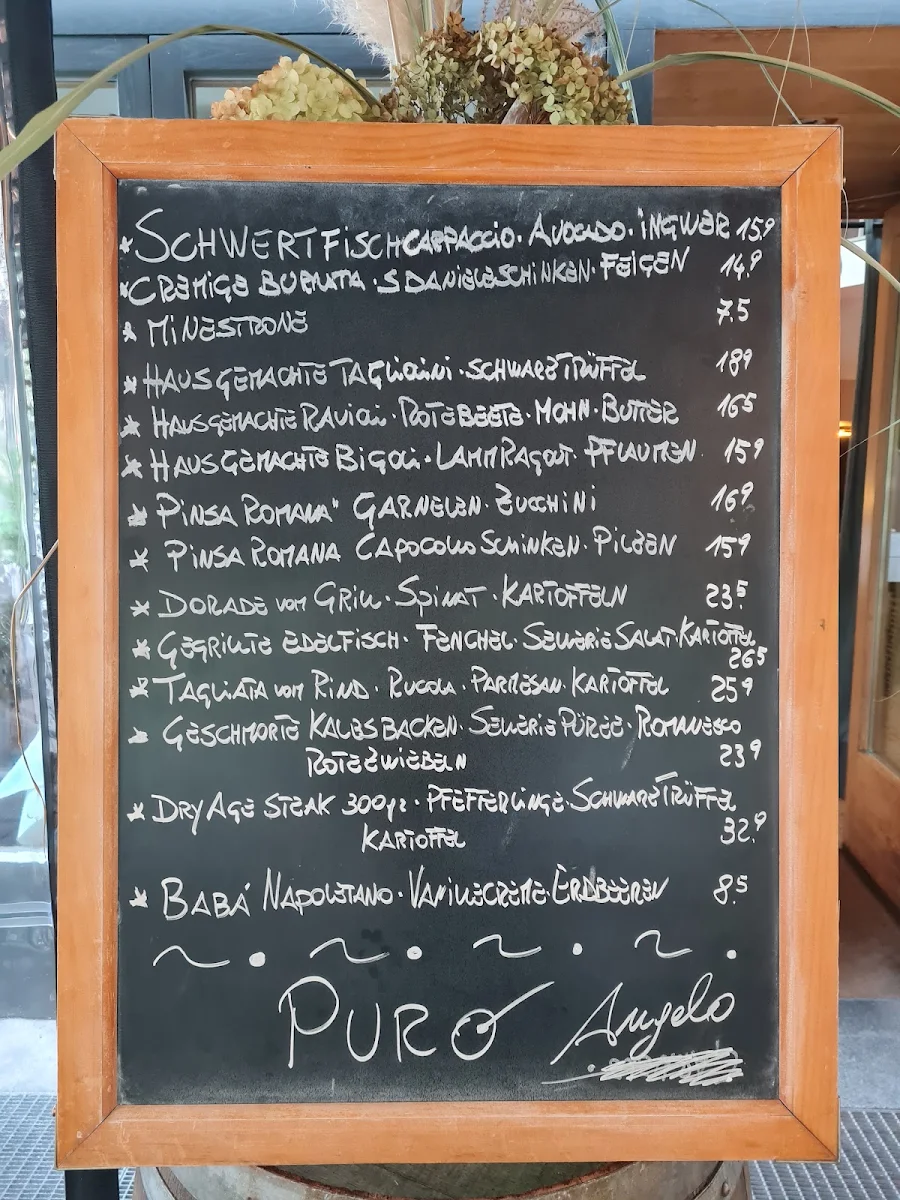 * SCHWERTFISCHCARPACCIO · AVOCADO · INGWER 15.9
* CREMIGE BURRATA · S DANIELESCHINKEN · FEIGEN 14.9
* MINESTRONE 7.5
* HAUSGEMACHTE TAGLIOLINI · SCHWARZTRÜFFEL 189
* HAUSGEMACHTE RAVIOLI · ROTE BEETE · MOHN · BUTTER 165
* HAUSGEMACHTE BIGOLI · LAMMRAGOUT · PFLAUMEN 159
* PINSA ROMANA" GARNELEN · ZUCCHINI 169
* PINSA ROMANA CAPOCOLLO SCHINKEN · PILZEN 159
* DORADE VOM GRILL · SPINAT · KARTOFFELN 23.5
* GEGRILLTE EDELFISCH · FENCHEL · SELLERIE SALAT · KARTOFFEL
265
* TAGLIATA VOM RIND · RUCOLA · PARMESAN · KARTOFFEL 259
* GESCHMORTE KALBSBACKEN · SELLERIE PÜREE · ROMANESCO
ROTE ZWIEBELN 239
* DRY AGE STEAK 300gr · PFEFFERLINGE · SCHWARZTRÜFFEL
KARTOFFEL 32.9
* BABÁ NAPOLETANO · VANILLECREME · ERDBEEREN 8.5
PURO Angelo